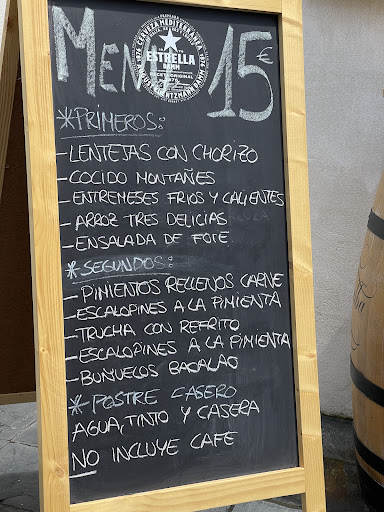 MENU 15€
CERVEZA MEDITERRANEA
1876
ESTRELLA
DAMM
*PRIMEROS:
-LENTEJAS CON CHORIZO
-COCIDO MONTAÑES
-ENTREMESES FRIOS Y CALIENTES
-ARROZ TRES DELICIAS
-ENSALADA DE FOIE
*SEGUNDOS:
-PIMIENTOS RELLENOS CARNE
-ESCALOPINES A LA PIMIENTA
-TRUCHA CON REFRITO
-ESCALOPINES A LA PIMIENTA
-BUÑUELOS BACALAO
*POSTRE CASERO
AGUA, TINTO Y CASERA
NO INCLUYE CAFE